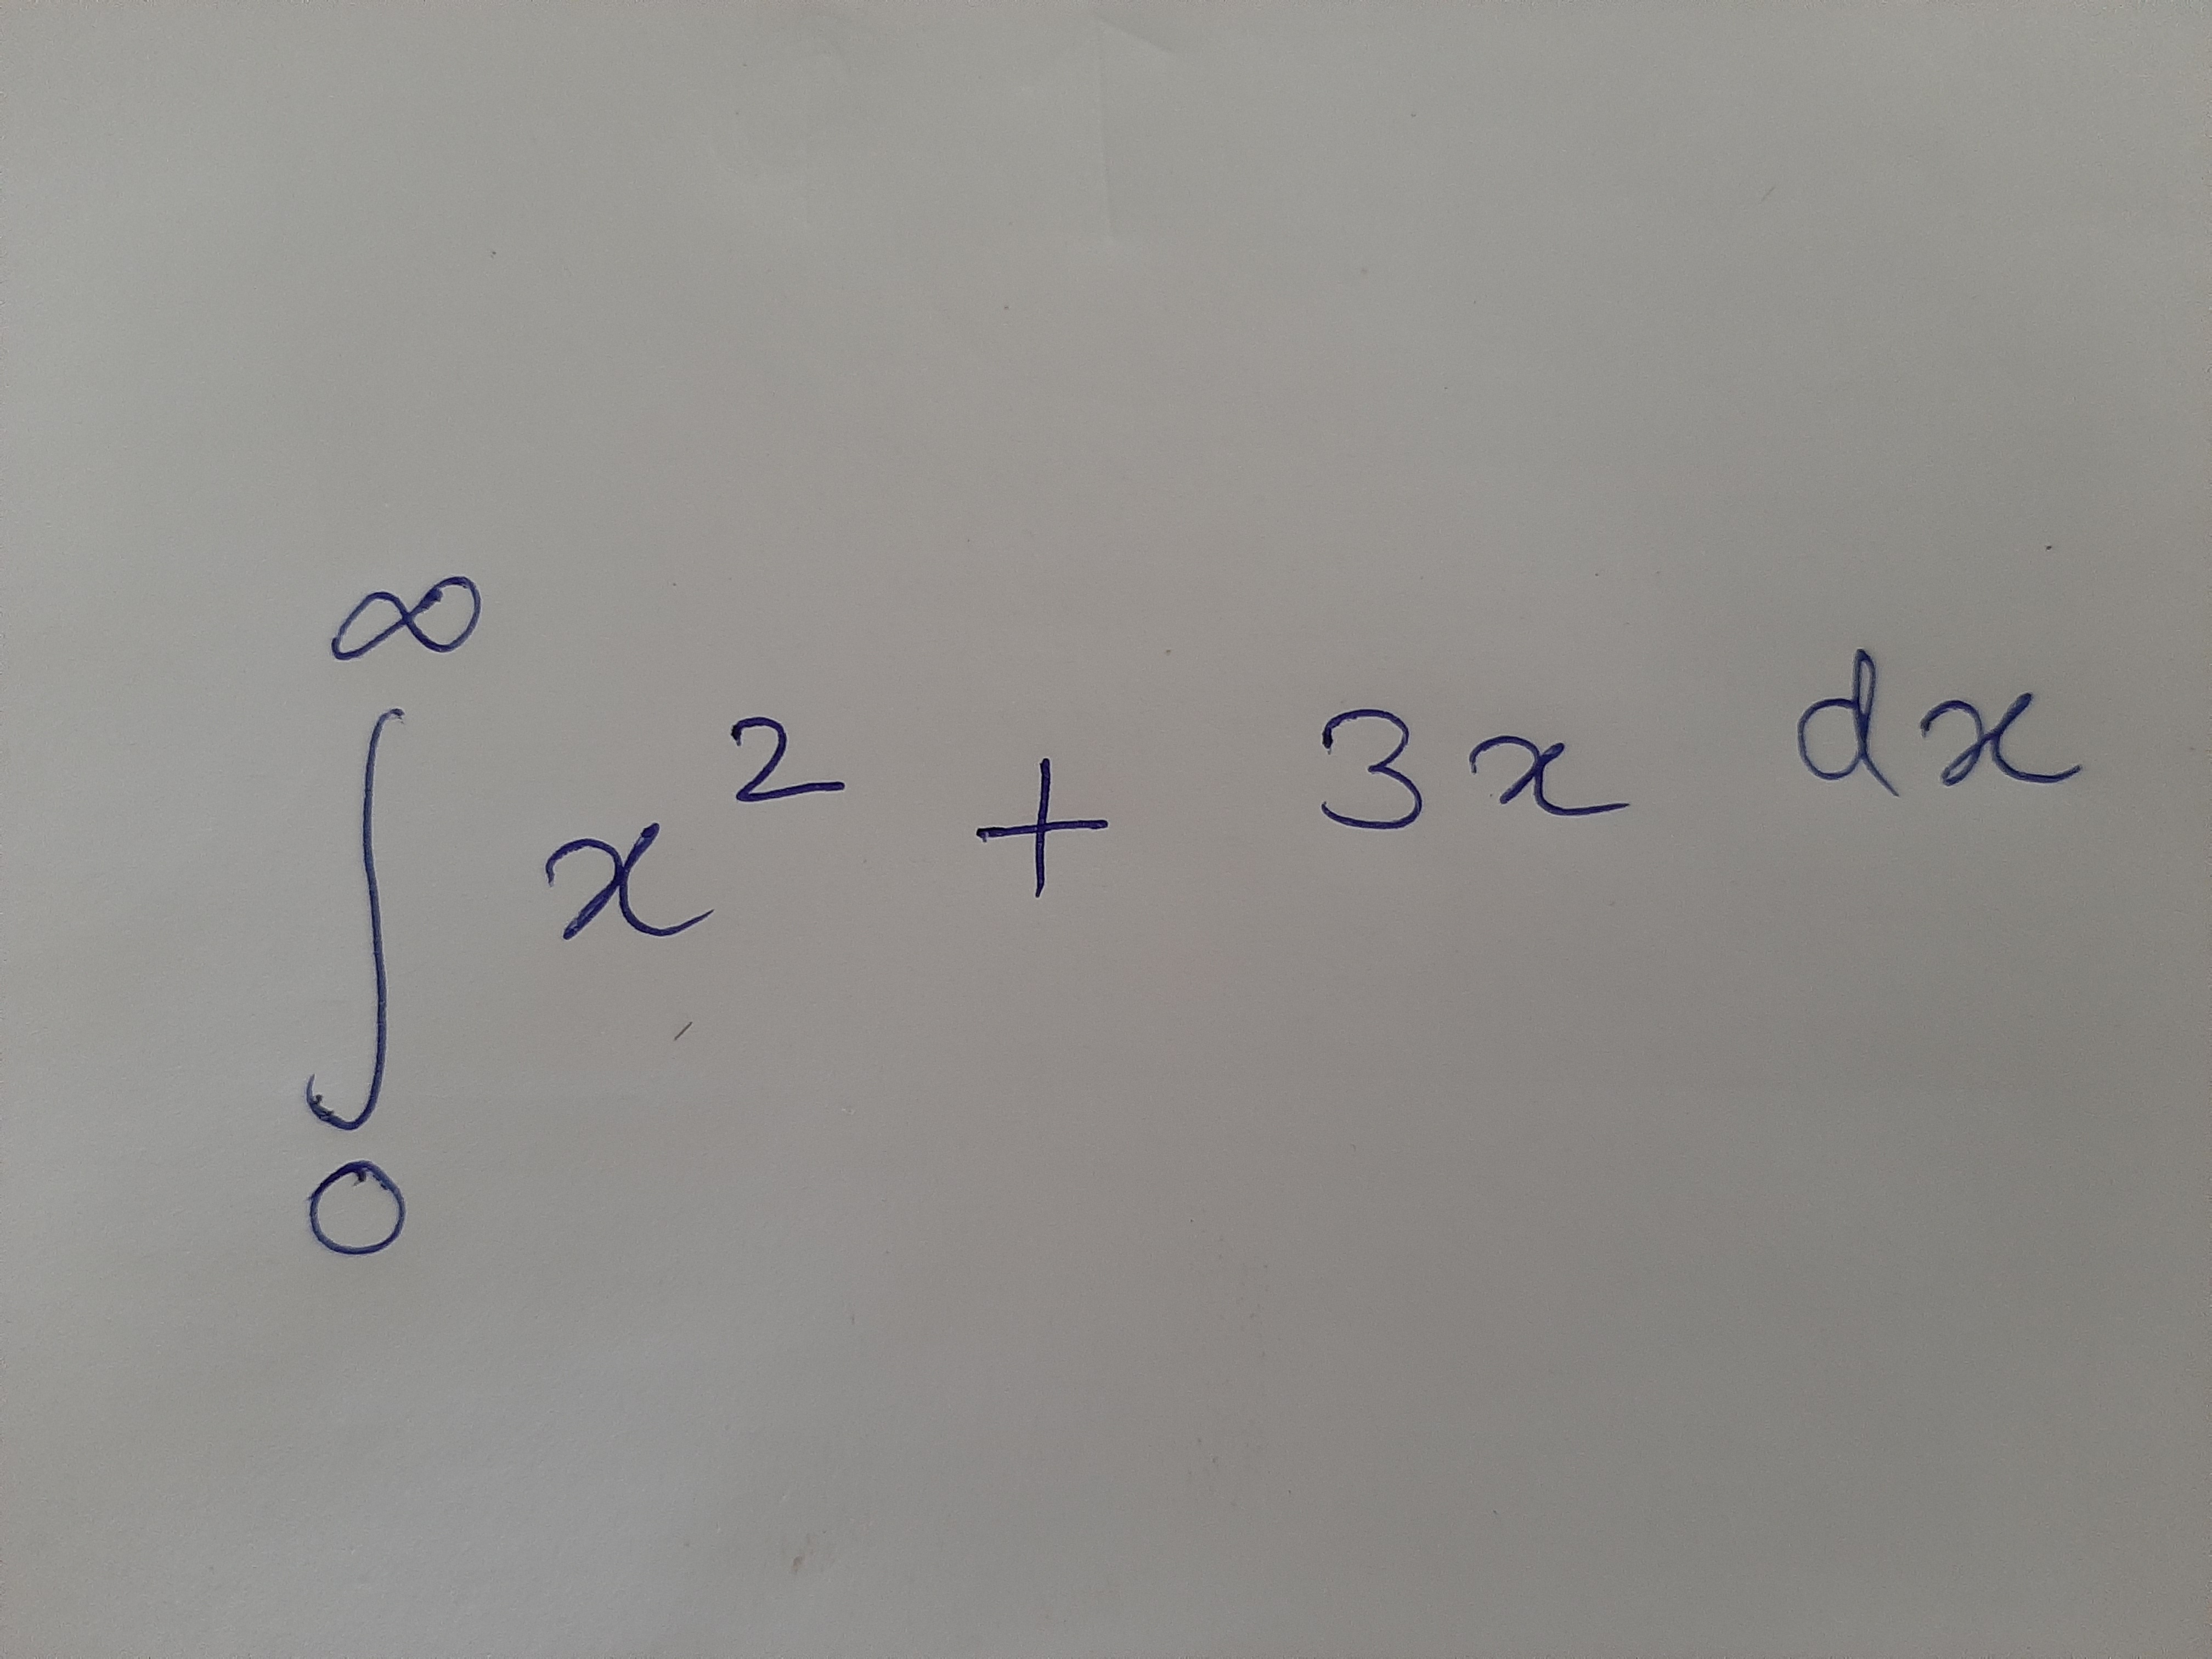 ∫₀^∞ x² + 3x dx